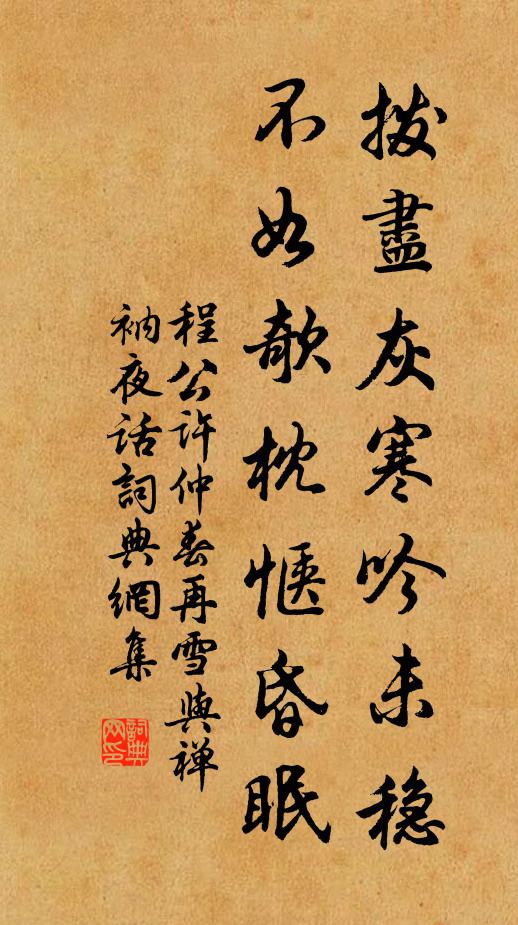 拨盡灰寒吟未稳
不如欹枕惬昏眠
程公许仲春再雪與禅
衲夜话詞典網集
詞典网印